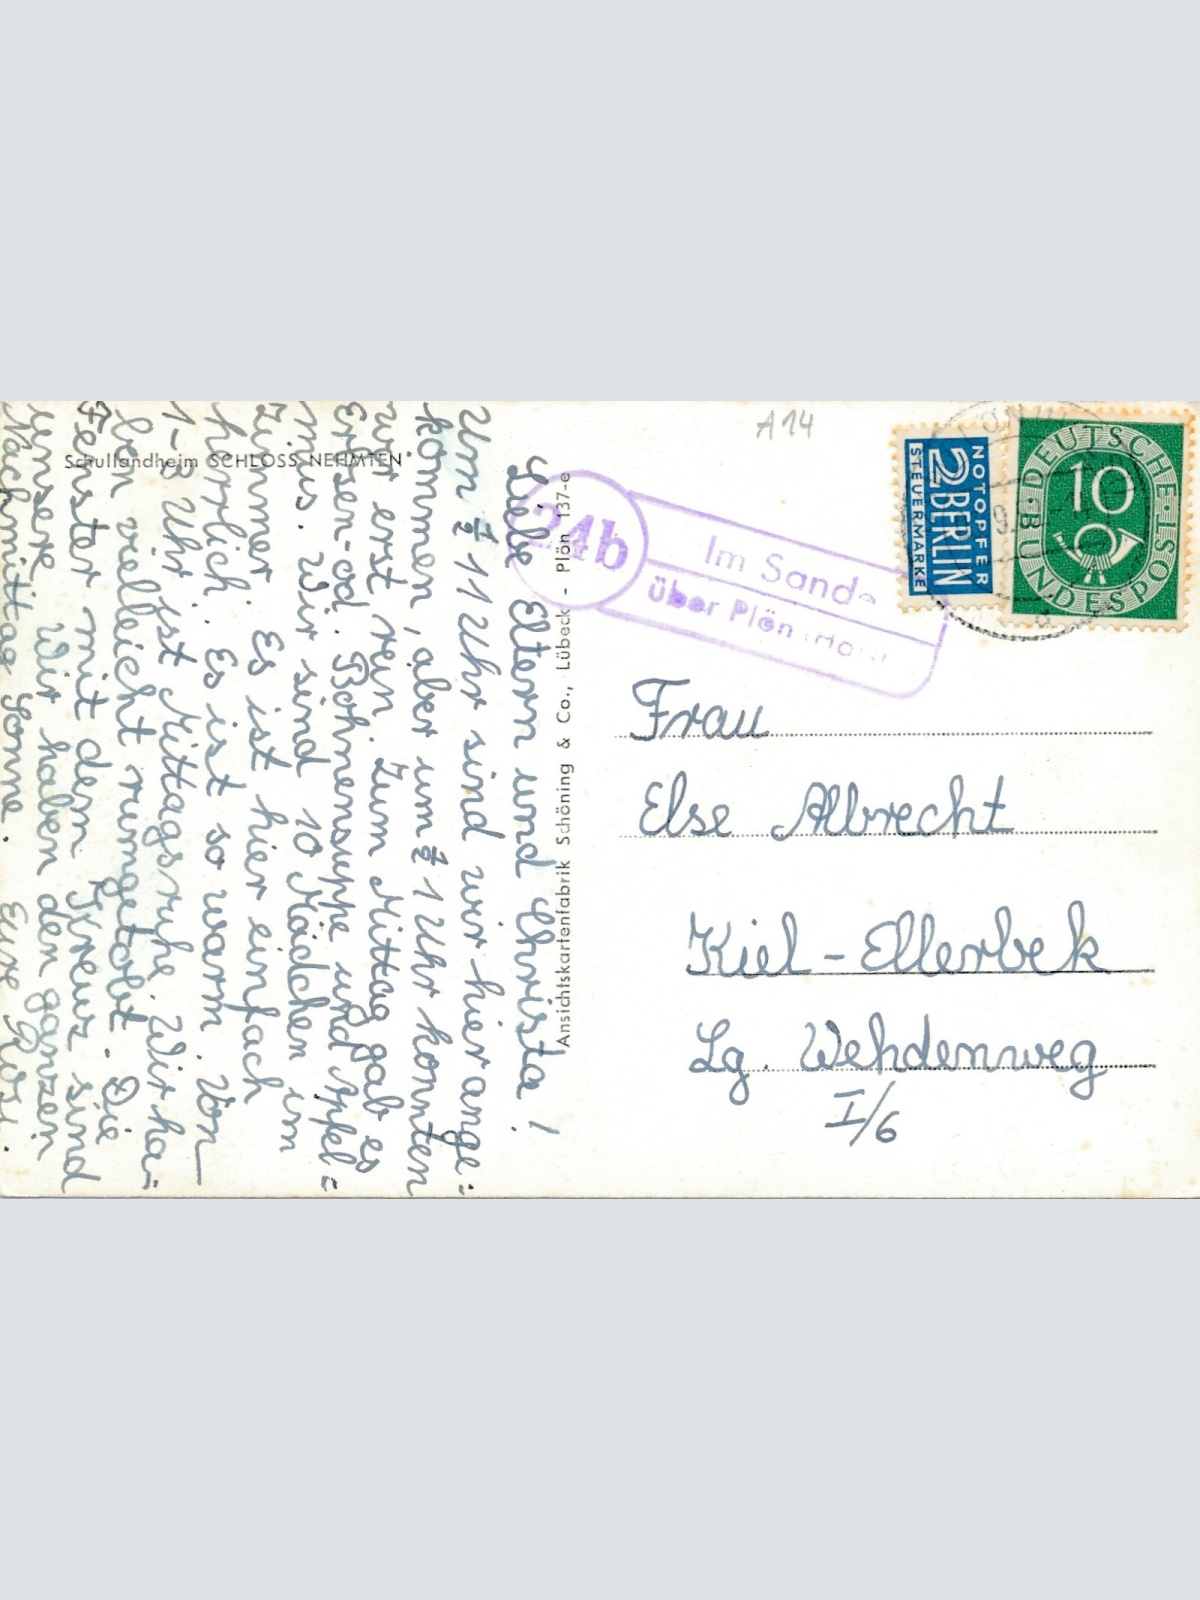 Schullandheim SCHLOSS NEHMTEN
Liebe Eltern und Christa!
Um ½ 11 Uhr sind wir hier ange=
kommen, aber um ½ 1 Uhr konnten
wir erst rein. Zum Mittag gab es
Erbsen- od. Bohnensuppe und Apfel=
mus. Wir sind 10 Mädchen im
Zimmer. Es ist hier einfach
herrlich. Es ist so warm. Von
1-3 Uhr ist Mittagsruhe. Wir ha=
ben vielleicht rumgetobt. Die
Fenster mit dem Kreuz sind
unsere. Wir haben den ganzen
Nachmittag Sonne. Eure
Ansichtskartenfabrik Schöning & Co., Lübeck - Plön 137-e
A14
24b
Im Sande
über Plön (Holst)
NOTOPFER
2 BERLIN
STEUERMARKE
DEUTSCHE BUNDESPOST
10
Frau
Else Albrecht
Kiel-Ellerbek
Lg. Wehdenweg
I/6